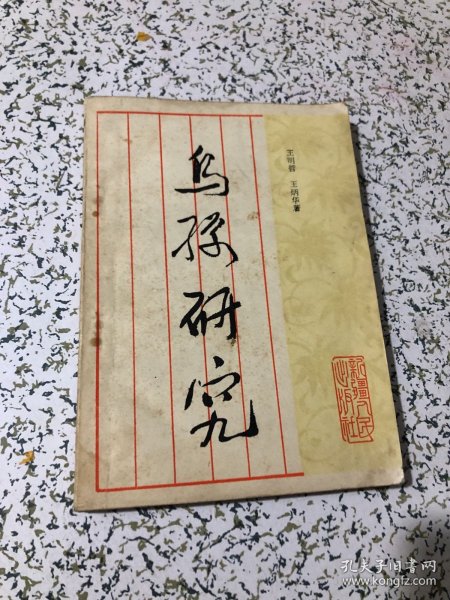 乌孙研究
王明哲 王炳华著
新疆人民出版社
孔夫子旧书网
www.kongfz.com